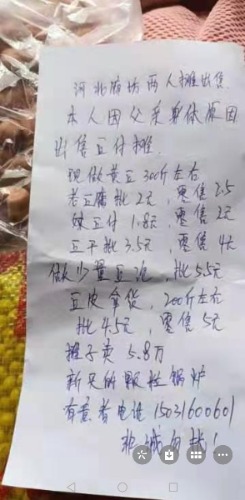 河北廊坊两人摊出售
本人因父亲身体原因
出售豆付摊
现做黄豆300斤左右
老豆腐批2元，零售2.5
嫩豆付1.8元，零售2元
豆干批3.5元，零售4元
做少量豆泡，批5.5元
豆皮拿货，200斤左右
批4.5元，零售5元
摊子卖5.8万
新买的颗粒锅炉
有意者电话15031600601
非诚勿扰！